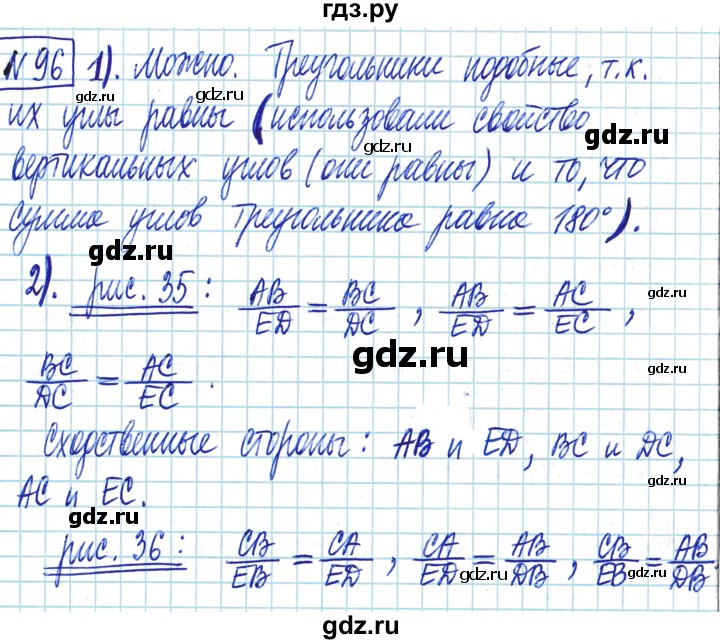 гдз.ру
№96 1). Можно. Треугольники подобные, т.к.
их углы равны (использовали свойство
gdz.ru gdz.ru
вертикальных углов (они равны) и то, что
gdz.ru
сумма углов треугольника равна 180°).
gdz.ru
2). рис. 35: AB/ED = BC/DC, AB/ED = AC/EC,
gdz.ru gdz.ru
gdz.ru
BC/DC = AC/EC.
gdz.ru
Сходственные стороны: AB и ED, BC и DC,
gdz.ru
AC и EC.
gdz.ru gdz.ru
рис. 36: CB/EB = CA/ED, CA/ED = AB/DB, CB/EB = AB/DB.
gdz.ru gdz.ru